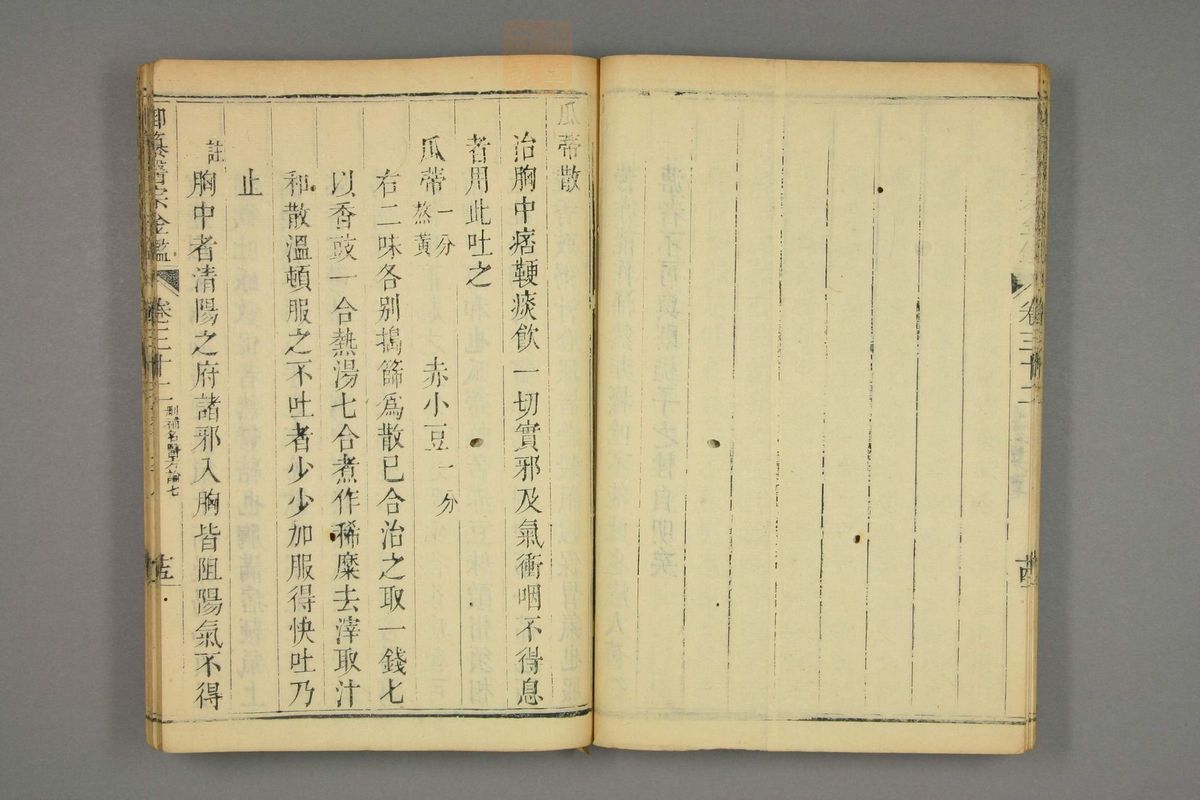 瓜蒂散
治胸中痞鞕痰飲一切實邪及氣衝咽不得息
者用此吐之
瓜蒂一分熬黃 赤小豆一分
右二味各别搗篩爲散已合治之取一錢七
以香豉一合熱湯七合煮作稀糜去滓取汁
和散溫頓服之不吐者少少加服得快吐乃
止
註
胸中者清陽之府諸邪入胸皆阻陽氣不得
御纂醫宗金鑑 卷三十二 刪補名醫方論七 十五
卷三十二